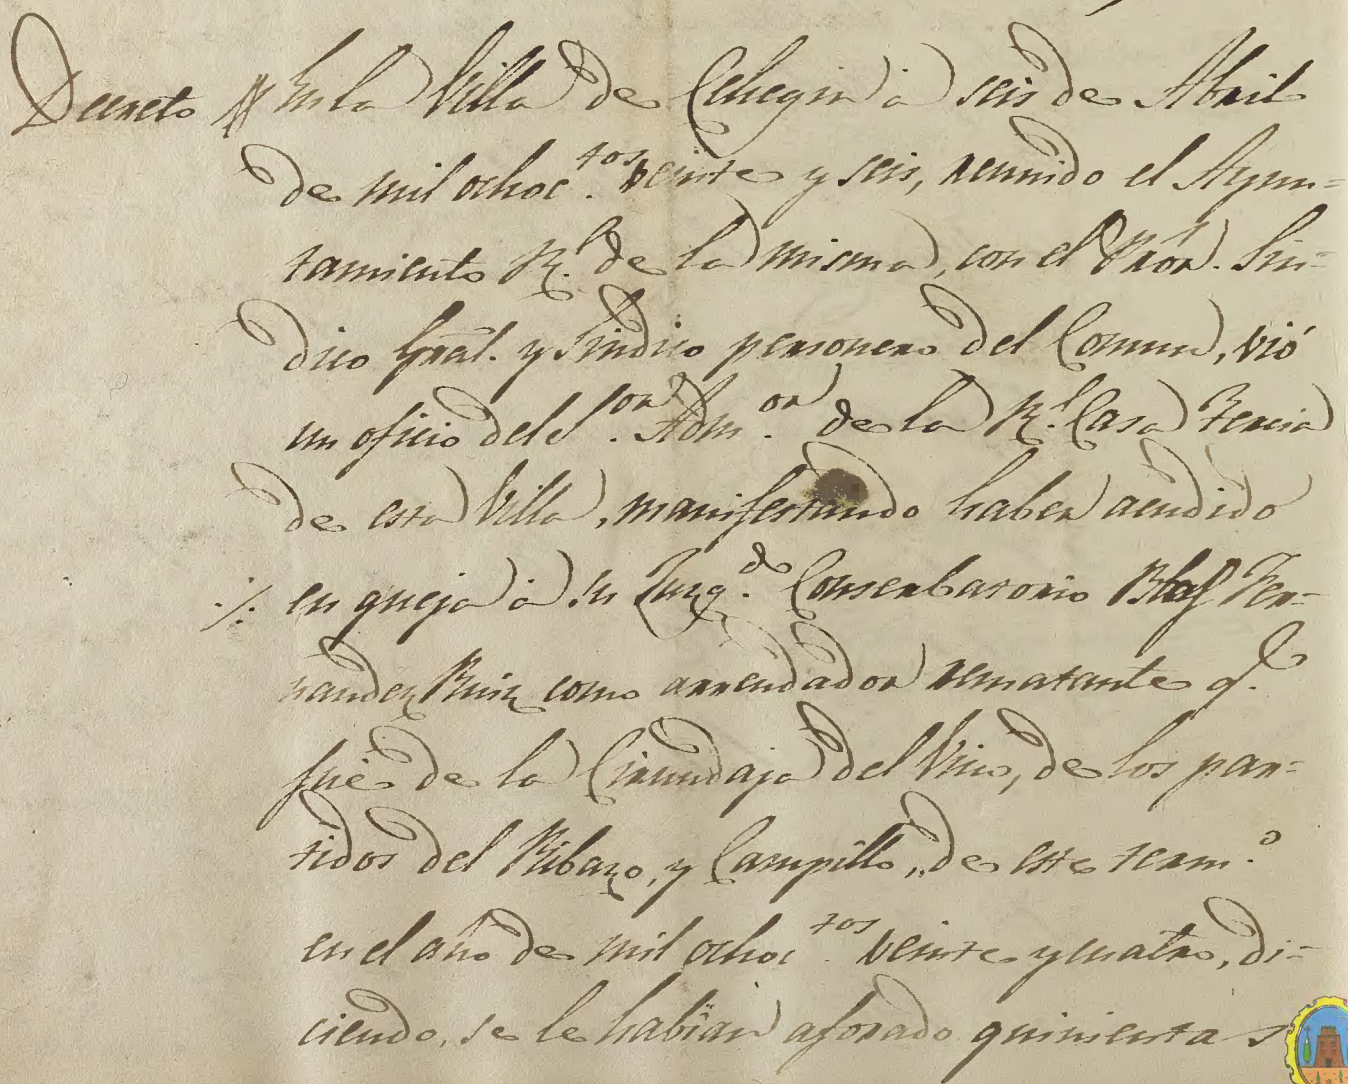 Decreto En la Villa de Cehegin à seis de Abril
de mil ochoc.tos veinte y seis, reunido el Ayun=
tamiento R.l de la misma, con el Prór. Sin=
dico Gral. y Sindico personero del Comun, vió
un oficio del S.or Adm.or de la R.l Casa Tercia
de esta Villa, manifestando haber acudido
./. en queja à su Juzg.do Conserbatorio Blas Fer=
nandez Ruiz como arrendador rematante q.e
fué de la Cinundaja del Vino, de los par=
tidos del Ribazo, y Campillo, de este term.o
en el año de mil ochoc.tos veinte y cuatro, di=
ciendo, se le habian aforado quinientas